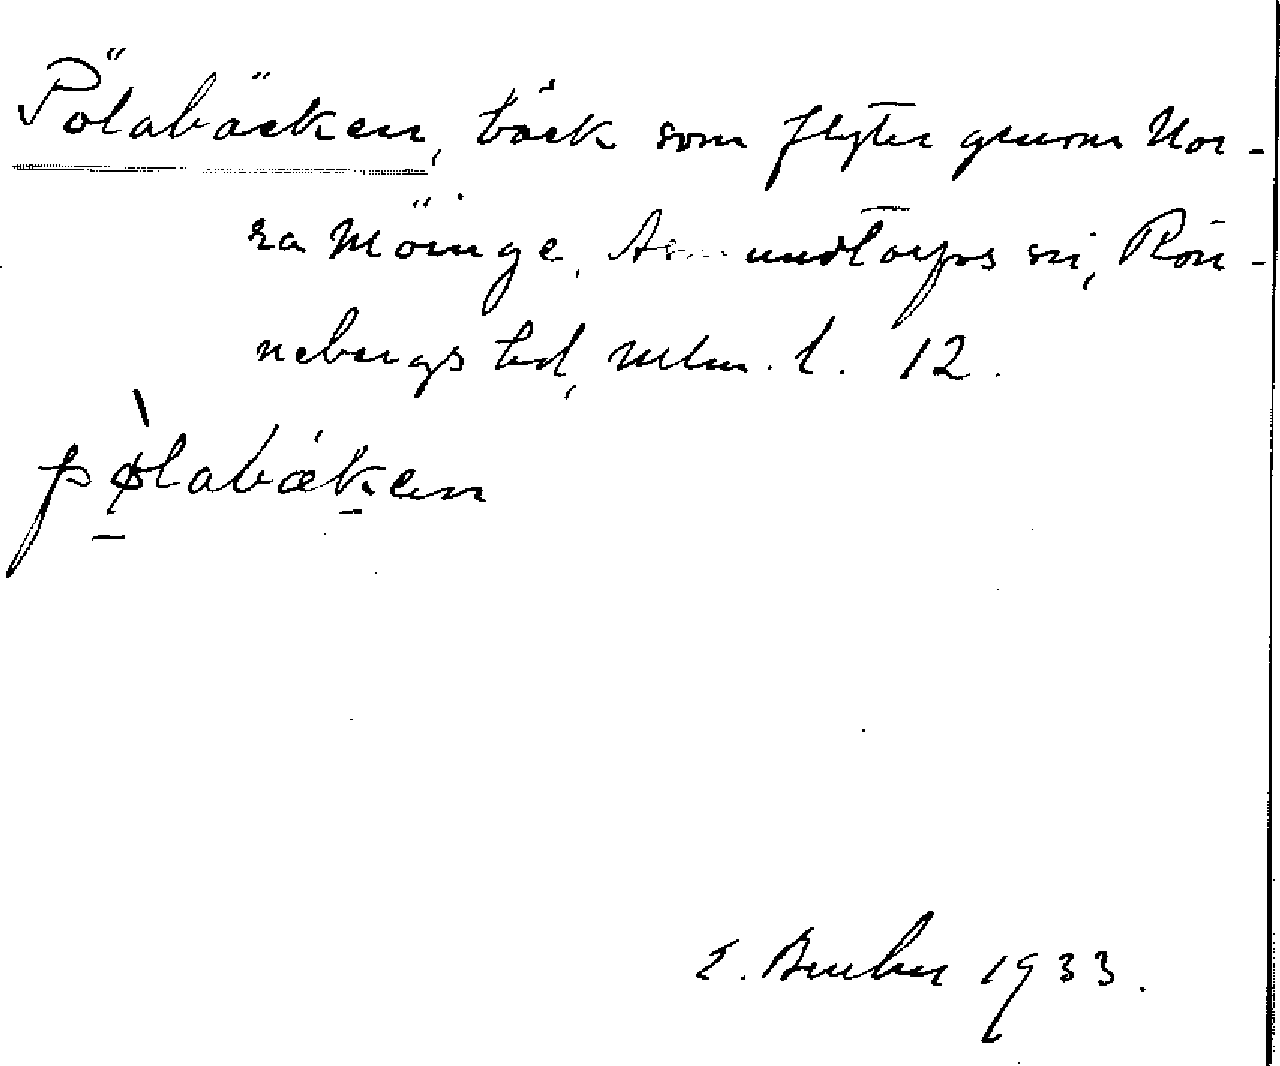 Pölabäcken, bäck som flyter genom Nor-
ra Möinge, Asmundtorps sn, Rön-
nebergs hd, Mlm. l. 12.
pø̀labæken
1933.